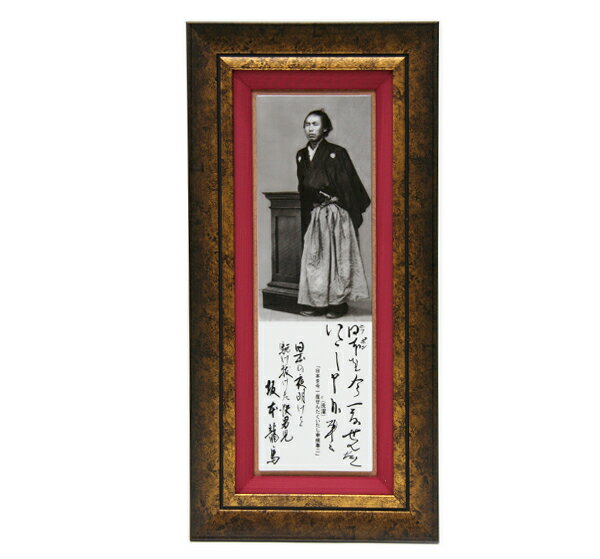 日本を今一度せんたく
いたし申候事ニ
「日本を今一度せんたくいたし申候事ニ」
(洗濯)
日本の夜明けを
駆け抜けた快男児
坂本龍馬